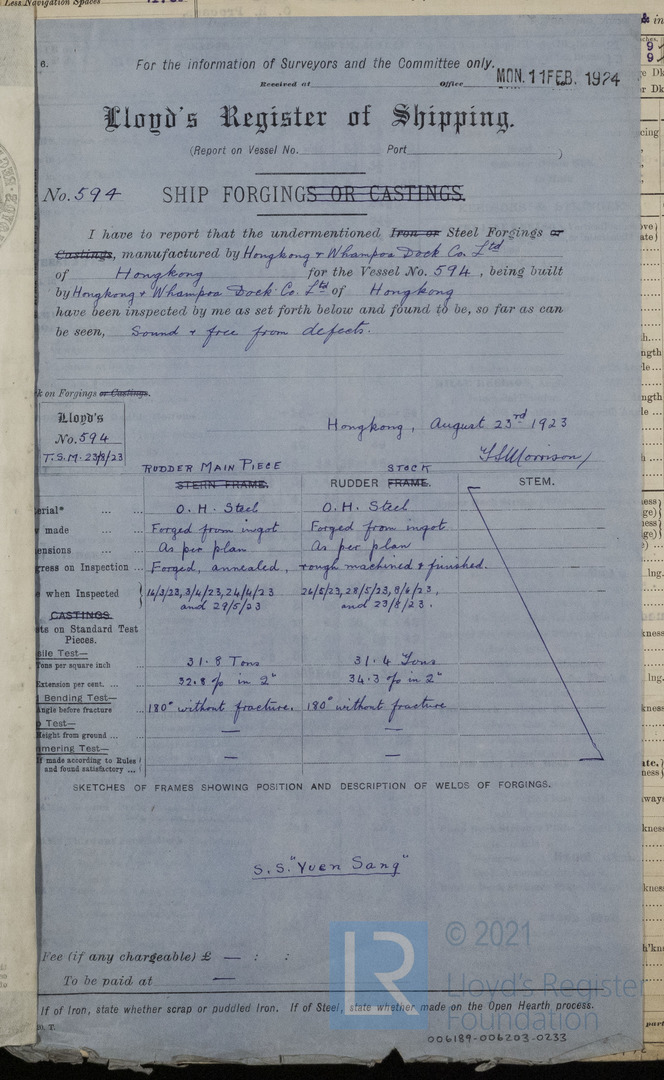 Less Navigation Spaces
6.
For the information of Surveyors and the Committee only.
Received at Office MON. 11 FEB. 1924
Lloyd's Register of Shipping.
(Report on Vessel No. Port )
No. 594 SHIP FORGINGS OR CASTINGS.
I have to report that the undermentioned Iron or Steel Forgings or
Castings, manufactured by Hongkong & Whampoa Dock Co. Ltd
of Hongkong for the Vessel No. 594, being built
by Hongkong & Whampoa Dock Co. Ltd of Hongkong
have been inspected by me as set forth below and found to be, so far as can
be seen, Sound & free from defects.
k on Forgings or Castings.
Lloyd's
No. 594
T.S.M. 23/8/23
Hongkong, August 23rd 1923
T S Morrison
RUDDER MAIN PIECE STOCK
STERN FRAME. RUDDER FRAME. STEM.
erial* ... ... O. H. Steel O. H. Steel
made ... Forged from ingot Forged from ingot
ensions ... As per plan As per plan
gress on Inspection ... Forged, annealed, rough machined & finished.
when Inspected 16/3/23, 3/4/23, 24/4/23 26/5/23, 28/5/23, 8/6/23,
and 29/5/23 and 23/8/23.
CASTINGS
ts on Standard Test
Pieces.
sile Test—
Tons per square inch ... 31.8 Tons 31.4 Tons
Extension per cent. ... 32.8 % in 2" 34.3 % in 2"
Bending Test—
Angle before fracture 180° without fracture. 180° without fracture
Test—
Height from ground ... — —
mering Test—
If made according to Rules
and found satisfactory ... — —
SKETCHES OF FRAMES SHOWING POSITION AND DESCRIPTION OF WELDS OF FORGINGS.
S.S. "Yuen Sang"
Fee (if any chargeable) £ — : :
To be paid at —
If of Iron, state whether scrap or puddled Iron. If of Steel, state whether made on the Open Hearth process.
, T.
LR
© 2021
Lloyd's Register
Foundation
006189-006203-0233